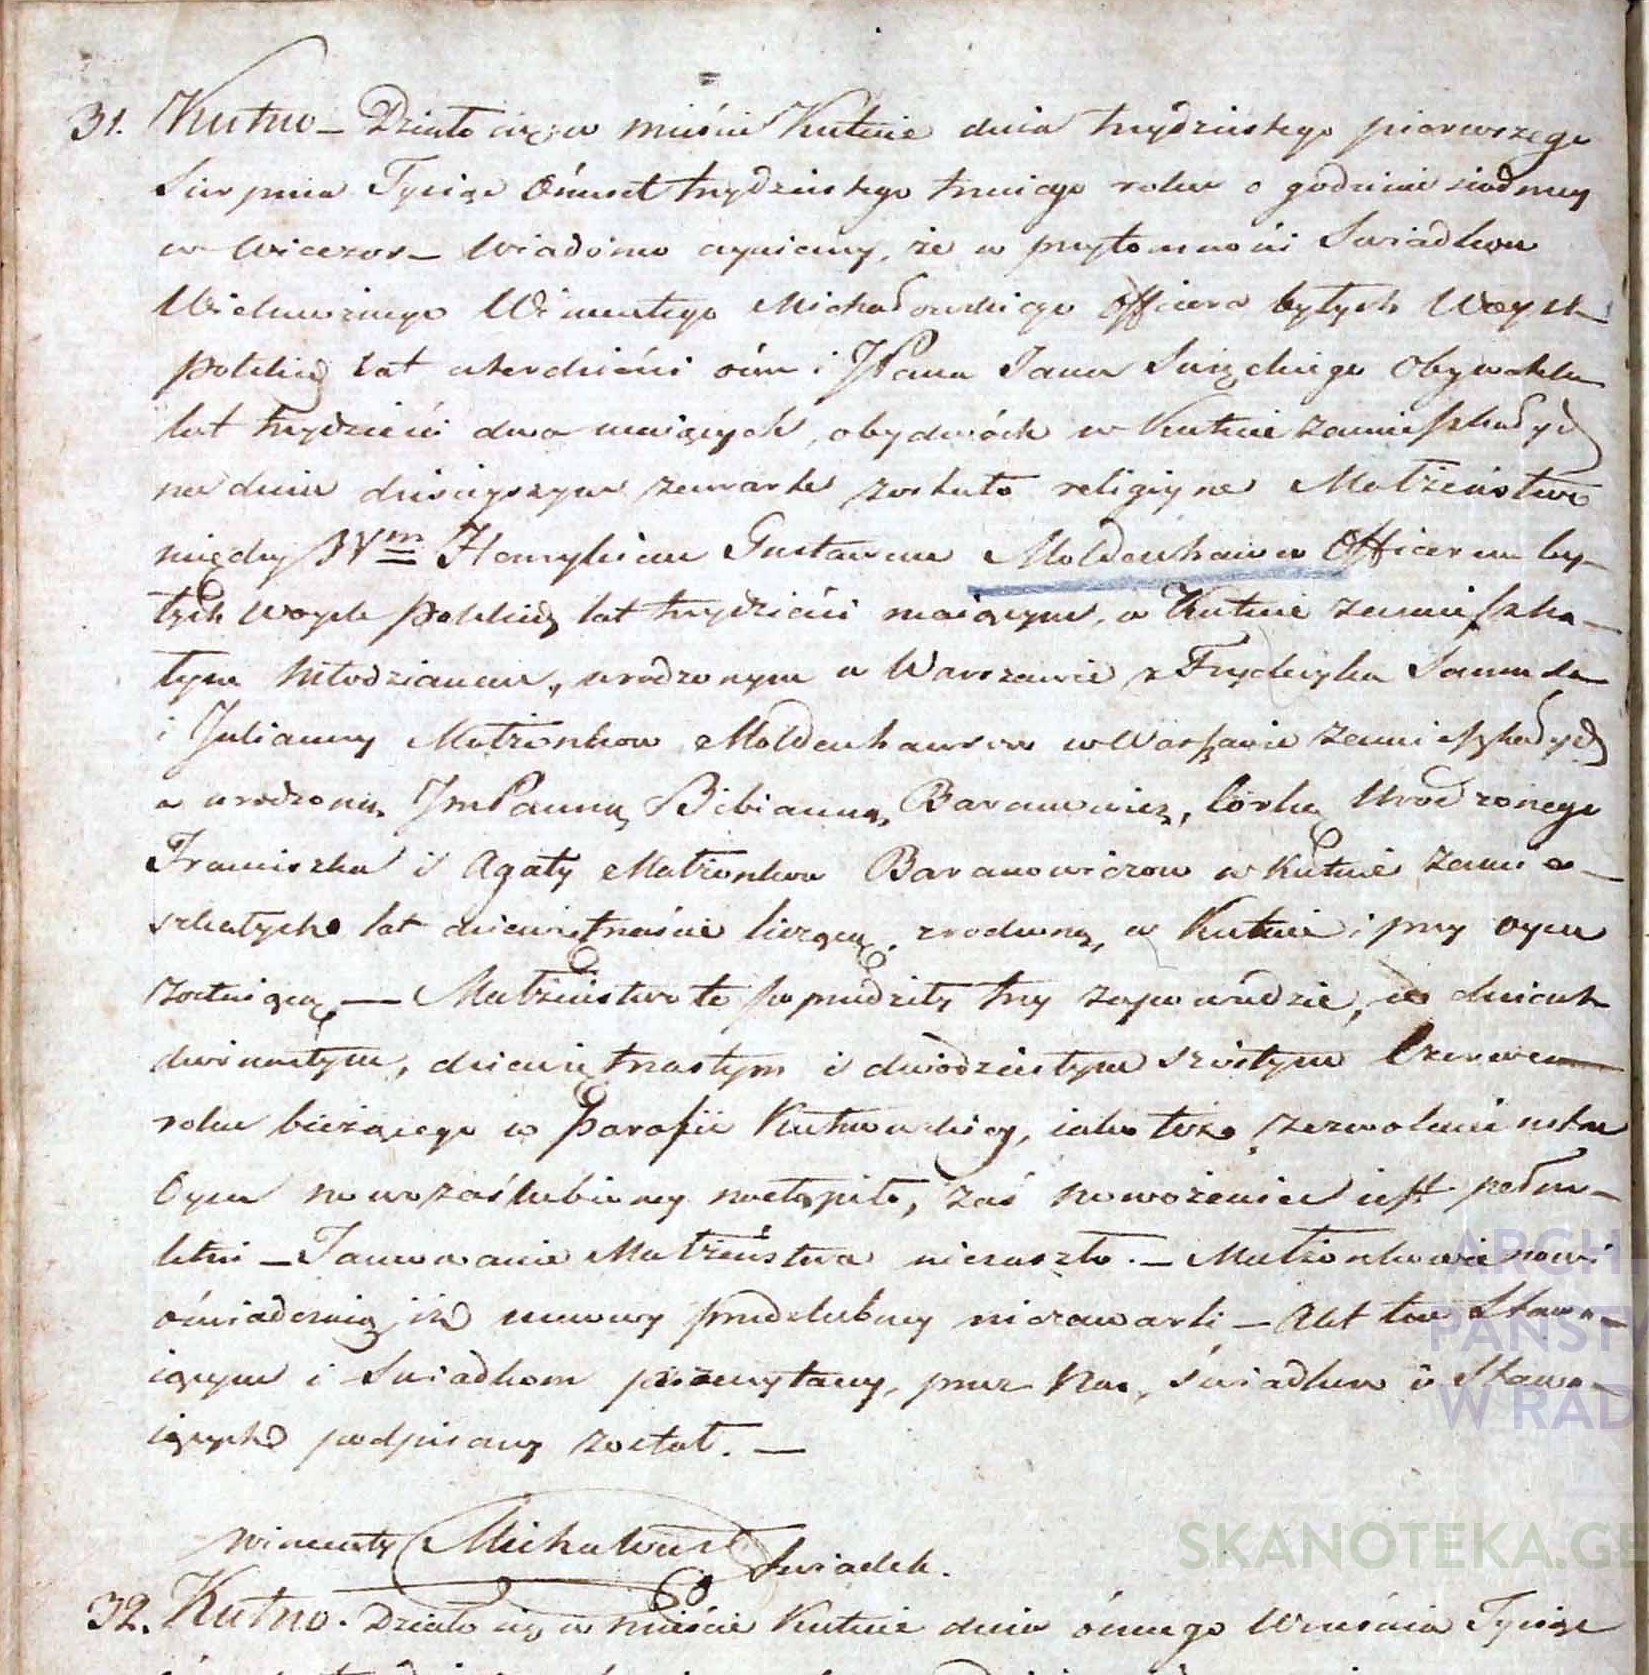 31. Kutno – Działo się w mieście Kutnie dnia trzydziestego pierwszego
Sierpnia Tysiąc Ośmset trzydziestego trzeciego roku o godzinie siodmey
w Wieczor – Wiadomo czyniemy, że w przytomności Swiadkow
Wielmożnego Wincentego Michałowskiego Officera byłych Woysk
Polskich lat czterdzieści ośm i JPana Jana Swięckiego Obywatela
lat trzydzieści dwa maiących, obydwóch w Kutnie zamieszkałych
na dniu dzisieyszym zawarte zostało religiyne Małżeństwo
między JVm Henrykiem Gustawem Moldenhawer Officerem by-
łych Woysk Polskich lat trzydzieści maiącym, w Kutnie zamieszka-
łym Młodzianem, urodzonym w Warszawie z Fryderyka Samuela
i Julianny Małżonkow Moldenhawerow w Warszawie zamieszkałych
a urodzoną JmPanną Bibianną Baranowicz, Córką Urodzonego
Franciszka i Agaty Małżonkow Baranowiczow w Kutnie zamie-
szkałych lat dziewiętnaście liczącą, zrodzoną w Kutnie i przy Oycu
zostaiącą – Małżeństwo to poprzedziły trzy zapowiedzie, w dniach
dwunastym, dziewiętnastym i dwódziestym szóstym Czerwca
roku bieżącego w Parafii Kutnowskiey, iako też zezwolenie ustne
Oyca nowozaślubioney nastąpiło, zaś nowożeniec iest pełno-
letni – Tamowanie Małżeństwa nie zaszło. – Małżonkowie nowi
oświadczaią iż umowy przedślubney niezawarli – Akt ten Stawa-
iącym i Swiadkom przeczytany, przez Nas, świadkow i Stawa-
iących podpisany został. –
Wincenty Michałowski Swiadek.
32. Kutno. Działo się w mieście Kutnie dnia ósmego Września Tysiąc
ARCH
PAŃST
W RAD
SKANOTEKA.GE